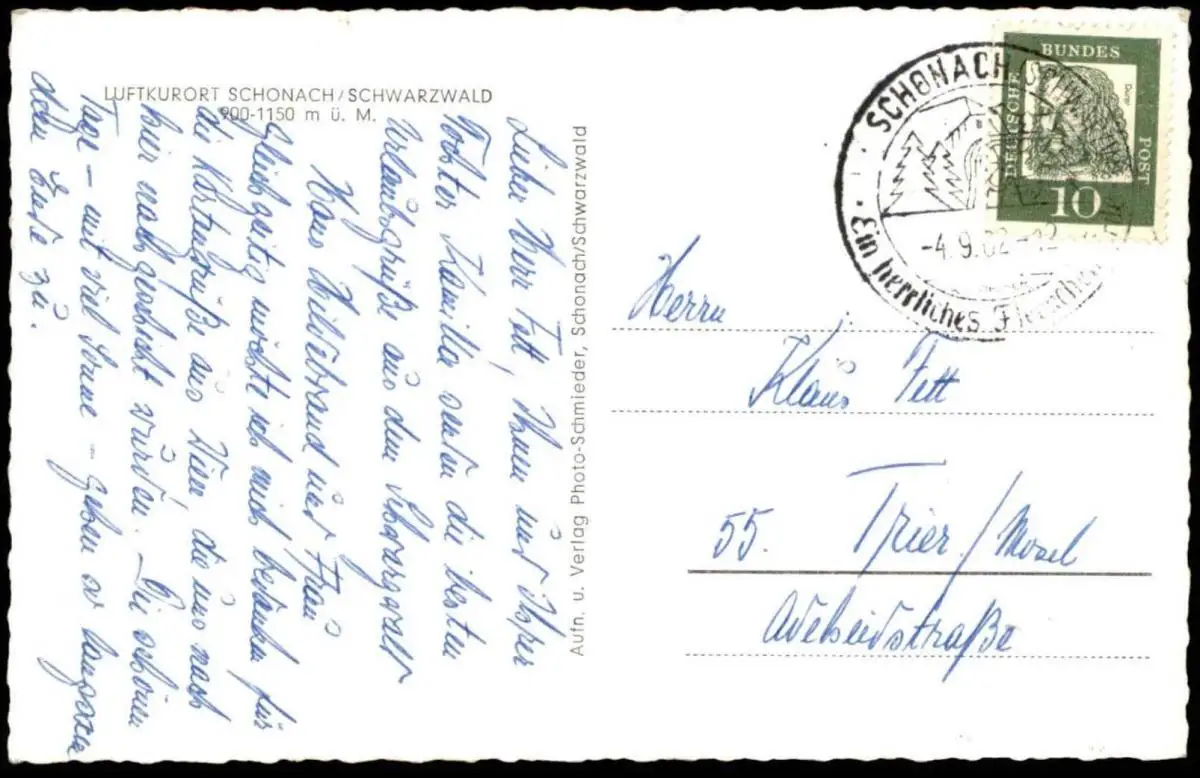 LUFTKURORT SCHONACH/SCHWARZWALD
900-1150 m ü. M.
Lieber Herr Fett, Ihnen und Ihrer
Tochter Familie senden die besten
Urlaubsgrüße aus dem Schwarzwald
Klaus Hillebrand und Frau
Gleichzeitig möchte ich mich bedanken für
die Kartengrüße aus Wien, die uns nach
hier nachgeschickt wurden. – Die schönen
Tage – mit viel Sonne – gehen so langsam
dem Ende zu.
Aufn. u. Verlag Photo-Schmieder, Schonach/Schwarzwald
SCHONACH (SCHWARZW
-4.9.62-12
Ein herrliches
DEUTSCHE
BUNDES
POST
Dürer
10
Herrn
Klaus Fett
55. Trier/Mosel
Adelheidstraße